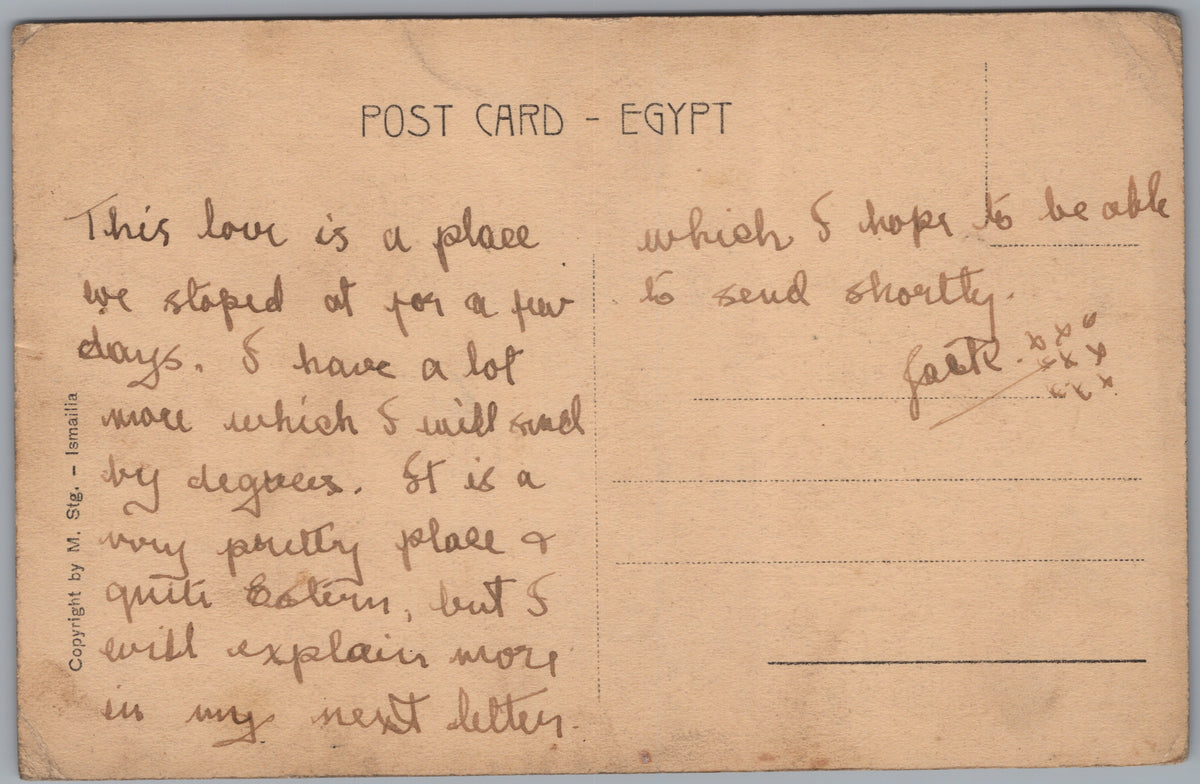 POST CARD - EGYPT
This love is a place
we stoped at for a few
days. I have a lot
more which I will send
by degrees. It is a
very pretty place &
quite Estern, but I
will explain more
in my next letter.
which I hope to be able
to send shortly.
Jack. x x x
x x x
x x x
Copyright by M. Stg. - Ismailia